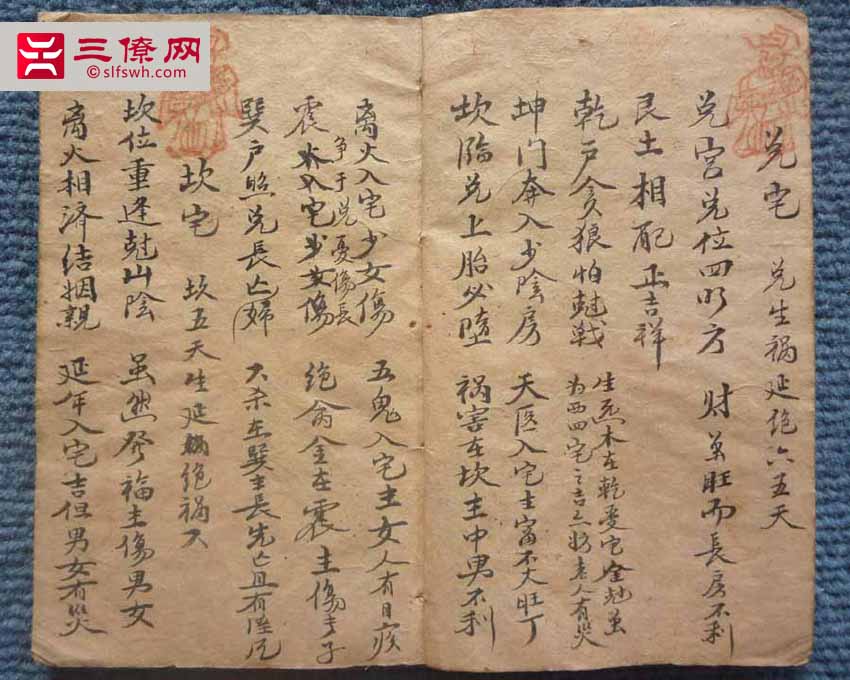 三僚网
slfswh.com
兑宅 兑生祸延绝六五天
兑宫兑位四方 财虽旺而長房不利
艮土相配正吉祥
乾戸貪狼怕尅戰 生炁木在乾受宅金尅虽
为西四宅之吉六老人有災
坤门奔入少陰房 天医入宅主富不大旺丁
坎臨兑上胎必墮 祸害在坎主中男不利
离火入宅少女傷 五鬼入宅主女人有目疾
震木入宅少女傷 绝命金在震主傷長子
争于兑憂傷長
巽户照兑長亡婦 六杀在巽主長先亡且有淫
坎宅 坎五天生延绝祸六
坎位重逢尅山陰 虽然發福主傷男女
离火相濟结姻親 延年入宅吉但男女有災